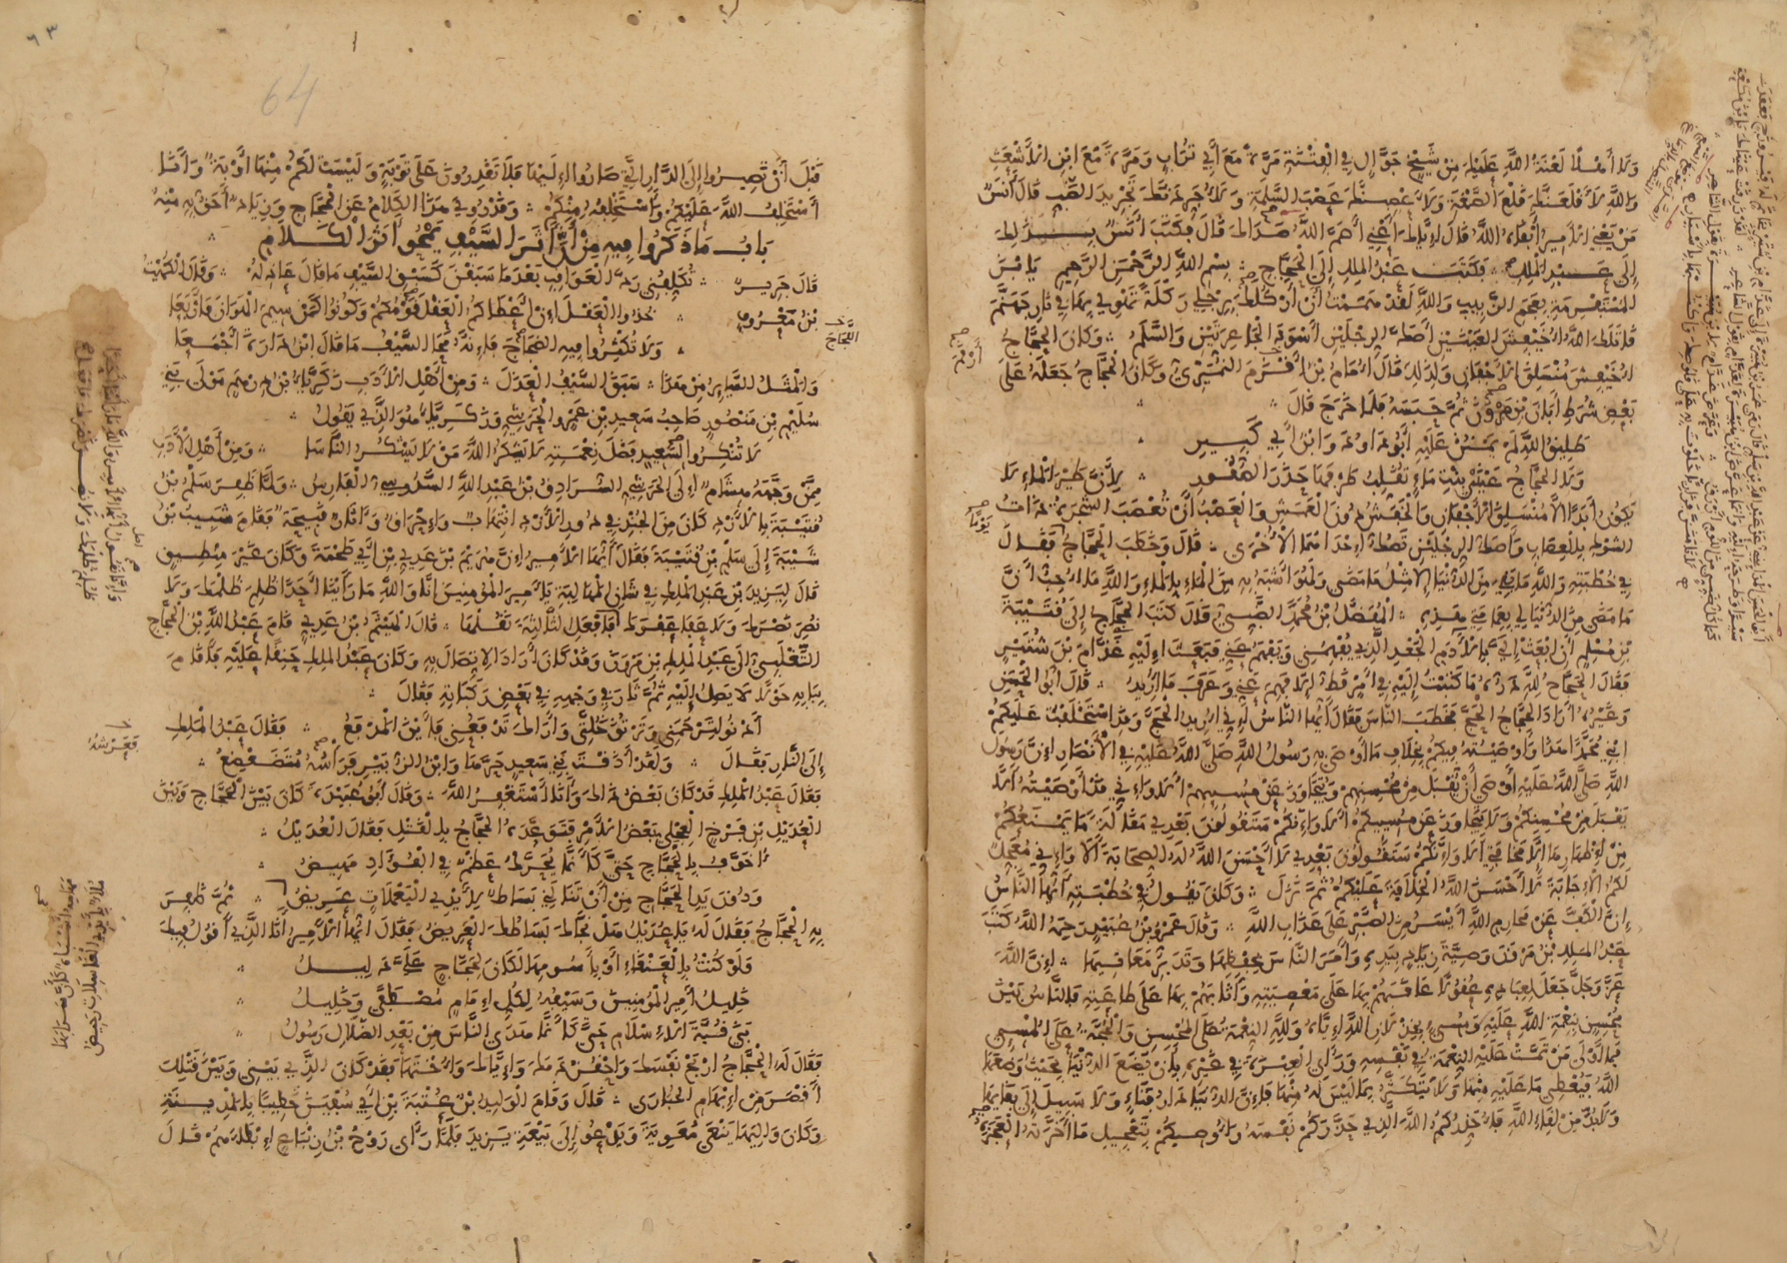 وَلَا أَهْلًا لَعْنَةُ اللَّهِ عَلَيْكَ مِنْ شَيْخٍ جَوَّالٍ فِي الْفِتْنَةِ مَرَّةً مَعَ أَبِي تُرَابٍ وَمَرَّةً مَعَ ابْنِ الْأَشْعَثِ
وَاللَّهِ لَأَقْلَعَنَّكَ قَلْعَ الصَّمْغَةِ وَلَأَعْصِبَنَّكَ عَصْبَ السَّلَمَةِ وَلَأُجَرِّدَنَّكَ تَجْرِيدَ الضَّبِّ قَالَ أَنَسٌ
مَنْ يَعْنِي الْأَمِيرُ أَبْقَاهُ اللَّهُ قَالَ إِيَّاكَ أَعْنِي أَصَمَّ اللَّهُ صَدَاكَ قَالَ فَكَتَبَ أَنَسٌ بِذَلِكَ
إِلَى عَبْدِ الْمَلِكِ فَكَتَبَ عَبْدُ الْمَلِكِ إِلَى الْحَجَّاجِ بِسْمِ اللَّهِ الرَّحْمَنِ الرَّحِيمِ يَا ابْنَ
الْمُسْتَفْرِمَةِ بِعَجَمِ الزَّبِيبِ وَاللَّهِ لَقَدْ هَمَمْتُ أَنْ أَرْكُلَكَ بِرِجْلِي رَكْلَةً تَهْوِي بِهَا فِي نَارِ جَهَنَّمَ
قَاتَلَكَ اللَّهُ أُخَيْفِشَ الْعَيْنَيْنِ أَصَكَّ الرِّجْلَيْنِ أَسْوَدَ الْجَاعِرَتَيْنِ وَالسَّلَمُ وَكَانَ الْحَجَّاجُ
أُخَيْفِشَ مُنْسَلِقَ الْأَجْفَانِ وَلِذَلِكَ قَالَ إِمَامُ بْنُ أَقْرَمَ النُّمَيْرِيُّ وَكَانَ الْحَجَّاجُ جَعَلَهُ عَلَى
بَعْضِ شُرَطِ أَبَانَ بْنِ مَرْوَانَ ثُمَّ حَبَسَهُ فَلَمَّا خَرَجَ قَالَ
طَلِيقُ اللَّهِ لَمْ يَمْنُنْ عَلَيْهِ أَبُو دَاوُدَ وَابْنُ أَبِي كَبِيرِ
وَلَا الْحَجَّاجُ عَيْنَيْ بِنْتِ مَاءٍ تُقَلِّبُ طَرْفَهَا حَذَرَ الصُّقُورِ لِأَنَّ طَيْرَ الْمَاءِ لَا
يَكُونُ أَبَدًا إِلَّا مُنْسَلِقَ الْأَجْفَانِ وَالْخَفَشُ دُونَ الْعَمَشِ وَالْعَصْبُ أَنْ تُعْصَبَ الشَّجَرَةُ ذَاتُ
الشَّوْكِ بِالْعِصَابِ وَأَصَكُّ الرِّجْلَيْنِ تَصْطَكُّ إِحْدَاهُمَا الْأُخْرَى قَالَ وَخَطَبَ الْحَجَّاجُ فَقَالَ
فِي خُطْبَتِهِ وَاللَّهِ مَا بَقِيَ مِنَ الدُّنْيَا إِلَّا مِثْلُ مَا مَضَى وَلَهُوَ أَشْبَهُ بِهِ مِنَ الْمَاءِ بِالْمَاءِ وَاللَّهِ مَا أُحِبُّ أَنَّ
مَا مَضَى مِنَ الدُّنْيَا لِي بِعِمَامَتِي هَذِهِ الْمُفَضَّلُ بْنُ مُحَمَّدٍ الضَّبِّيُّ قَالَ كَتَبَ الْحَجَّاجُ إِلَى قُتَيْبَةَ
بْنِ مُسْلِمٍ أَنِ ابْعَثْ إِلَيَّ بِالْأَدَمِ الْجَعْدِ الَّذِي يُفْهِمُنِي وَيَفْهَمُ عَنِّي فَبَعَثَ إِلَيْهِ غَدَّامَ بْنَ شُتَيْرٍ
فَقَالَ الْحَجَّاجُ لِلَّهِ دَرُّهُ مَا كَتَبْتُ إِلَيْهِ فِي أَمْرٍ قَطُّ إِلَّا فَهِمَ عَنِّي وَعَرَفَ مَا أُرِيدُ قَالَ أَبُو الْحَسَنِ
وَغَيْرُهُ أَرَادَ الْحَجَّاجُ الْحَجَّ فَخَطَبَ النَّاسَ فَقَالَ أَيُّهَا النَّاسُ إِنِّي أُرِيدُ الْحَجَّ وَقَدِ اسْتَخْلَفْتُ عَلَيْكُمْ
ابْنِي مُحَمَّدًا هَذَا وَأَوْصَيْتُهُ فِيكُمْ بِخِلَافِ مَا أَوْصَى بِهِ رَسُولُ اللَّهِ صَلَّى اللَّهُ عَلَيْهِ فِي الْأَنْصَارِ إِنَّ رَسُولَ
اللَّهِ صَلَّى اللَّهُ عَلَيْهِ أَوْصَى أَنْ يُقْبَلَ مِنْ مُحْسِنِهِمْ وَيُتَجَاوَزَ عَنْ مُسِيئِهِمْ أَلَا وَإِنِّي قَدْ أَوْصَيْتُهُ أَلَّا
يَقْبَلَ مِنْ مُحْسِنِكُمْ وَلَا يَتَجَاوَزَ عَنْ مُسِيئِكُمْ أَلَا وَإِنَّكُمْ سَتَقُولُونَ بَعْدِي مَقَالَةً مَا يَمْنَعُكُمْ
مِنْ إِظْهَارِهَا إِلَّا مَخَافَتِي أَلَا وَإِنَّكُمْ سَتَقُولُونَ بَعْدِي لَا أَحْسَنَ اللَّهُ لَهُ الصَّحَابَةَ أَلَا وَإِنِّي مُعَجِّلٌ
لَكُمُ الْإِجَابَةَ لَا أَحْسَنَ اللَّهُ الْخِلَافَةَ عَلَيْكُمْ ثُمَّ نَزَلَ وَكَانَ يَقُولُ فِي خُطْبَتِهِ أَيُّهَا النَّاسُ
إِنَّ الْكَفَّ عَنْ مَحَارِمِ اللَّهِ أَيْسَرُ مِنَ الصَّبْرِ عَلَى عَذَابِ اللَّهِ وَقَالَ عَمْرُو بْنُ عُبَيْدٍ رَحِمَهُ اللَّهُ كَتَبَ
عَبْدُ الْمَلِكِ بْنُ مَرْوَانَ وَصِيَّةَ زِيَادٍ بِيَدِهِ وَأَمَرَ النَّاسَ بِحِفْظِهَا وَتَدَبُّرِ مَعَانِيهَا إِنَّ اللَّهَ
عَزَّ وَجَلَّ جَعَلَ لِعِبَادِهِ عُقُولًا عَاقَبَهُمْ بِهَا عَلَى مَعْصِيَتِهِ وَأَثَابَهُمْ بِهَا عَلَى طَاعَتِهِ فَالنَّاسُ بَيْنَ
مُحْسِنٍ بِنِعْمَةِ اللَّهِ عَلَيْهِ وَمُسِيءٍ بِخِذْلَانِ اللَّهِ إِيَّاهُ وَلِلَّهِ النِّعْمَةُ عَلَى الْمُحْسِنِ وَالْحُجَّةُ عَلَى الْمُسِيءِ
فَمَا أَوْلَى مَنْ تَمَّتْ عَلَيْهِ النِّعْمَةُ فِي نَفْسِهِ وَرَأَى الْعِبْرَةَ فِي غَيْرِهِ بِأَنْ يَضَعَ الدُّنْيَا بِحَيْثُ وَضَعَهَا
اللَّهُ فَيُعْطِيَ مَا عَلَيْهِ مِنْهَا وَلَا يَتَكَثَّرُ بِمَا لَيْسَ لَهُ مِنْهَا فَإِنَّ الدُّنْيَا دَارُ فَنَاءٍ وَلَا سَبِيلَ إِلَى بَقَائِهَا
وَلَا بُدَّ مِنْ لِقَاءِ اللَّهِ فَأُحَذِّرُكُمُ اللَّهَ الَّذِي حَذَّرَكُمْ نَفْسَهُ وَأُوصِيكُمْ بِتَعْجِيلِ مَا أَخَّرَتْهُ الْعَجَزَةُ
٦٣
64
قَبْلَ أَنْ تَصِيرُوا إِلَى الدَّارِ الَّتِي صَارُوا إِلَيْهَا فَلَا تَقْدِرُونَ عَلَى تَوْبَةٍ وَلَيْسَتْ لَكُمْ مِنْهَا أَوْبَةٌ وَأَنَا
أَسْتَخْلِفُ اللَّهَ عَلَيْكُمْ وَأَسْتَخْلِفُهُ مِنْكُمْ وَقَدْ رُوِيَ هَذَا الْكَلَامُ عَنِ الْحَجَّاجِ وَزِيَادٌ أَحَقُّ بِهِ مِنْهُ
بَابُ مَا ذَكَرُوا فِيهِ مِنْ أَنَّ أَثَرَ السَّيْفِ يَمْحُو أَثَرَ الْكَلَامِ
قَالَ جَرِيرٌ تُكَلِّفُنِي رَدَّ الْعَوَاقِبِ بَعْدَمَا سَبَقْنَ كَسَبْقِ السَّيْفِ مَا قَالَ عَاذِلُهْ وَقَالَ الْكُمَيْتُ
بْنُ مَعْرُوفٍ خُذُوا الْعَقْلَ إِنْ أَعْطَاكُمُ الْعَقْلَ قَوْمُكُمْ وَكُونُوا كَمَنْ سِيمَ الْهَوَانَ فَأَرْتَعَا
وَلَا تُكْثِرُوا فِيهِ الضَّجَاجَ فَإِنَّهُ مَحَا السَّيْفُ مَا قَالَ ابْنُ دَارَةَ أَجْمَعَا
اللَّجَاجَ
وَالْمَثَلُ السَّائِرُ مِنْ هَذَا سَبَقَ السَّيْفُ الْعَذَلَ وَمِنْ أَهْلِ الْأَدَبِ زَكَرِيَّاءُ بْنُ دِرْهَمٍ مَوْلَى بَنِي
سُلَيْمِ بْنِ مَنْصُورٍ صَاحِبُ سَعِيدِ بْنِ عَمْرٍو الْحَرَشِيِّ وَزَكَرِيَّاءُ هُوَ الَّذِي يَقُولُ
لَا تُنْكِرُوا لِسَعِيدٍ فَضْلَ نِعْمَتِهِ لَا يَشْكُرُ اللَّهَ مَنْ لَا يَشْكُرُ النَّاسَا وَمِنْ أَهْلِ الْأَدَبِ
مِمَّنْ وَجَّهَهُ هِشَامٌ إِلَى الْحَرَشِيِّ السُّرَادِقُ بْنُ عَبْدِ اللَّهِ السَّدُوسِيُّ الْفَارِسُ وَلَمَّا ظَفِرَ سَلْمُ بْنُ
قُتَيْبَةَ بِالْأَزْدِ كَانَ مِنَ الْجُنْدِ فِي دُورِ الْأَزْدِ انْتِهَابٌ وَإِحْرَاقٌ وَآثَارٌ قَبِيحَةٌ فَقَامَ شَبِيبُ بْنُ
شَيْبَةَ إِلَى سَلْمِ بْنِ قُتَيْبَةَ فَقَالَ أَيُّهَا الْأَمِيرُ إِنَّ هُرَيْمَ بْنَ عَدِيِّ بْنِ أَبِي طَحْمَةَ وَكَانَ غَيْرَ مِنْطِيقٍ
قَالَ لِيَزِيدَ بْنِ عَبْدِ الْمَلِكِ فِي شَأْنِ الْمَهَالِبَةِ يَا أَمِيرَ الْمُؤْمِنِينَ إِنَّا وَاللَّهِ مَا رَأَيْنَا أَحَدًا ظُلِمَ ظُلْمَكَ وَلَا
نُصِرَ نَصْرَكَ وَلَا عَفَا عَفْوَكَ فَافْعَلِ الثَّالِثَةَ تَقُلْهَا قَالَ الْهَيْثَمُ بْنُ عَدِيٍّ قَامَ عَبْدُ اللَّهِ بْنُ الْحَجَّاجِ
التَّغْلَبِيُّ إِلَى عَبْدِ الْمَلِكِ بْنِ مَرْوَانَ وَقَدْ كَانَ أَرَادَ الِاتِّصَالَ بِهِ وَكَانَ عَبْدُ الْمَلِكِ حَنِقًا عَلَيْهِ فَأَقَامَ
بِبَابِهِ حَوْلًا لَا يَصِلُ إِلَيْهِ ثُمَّ ثَارَ فِي وَجْهِهِ فِي بَعْضِ رَكَبَاتِهِ فَقَالَ
أَدْنُو لِتَرْحَمَنِي وَتَرْتُقَ خَلَّتِي وَأَرَاكَ تَدْفَعُنِي فَأَيْنَ الْمَدْفَعُ فَقَالَ عَبْدُ الْمَلِكِ
إِلَى النَّارِ فَقَالَ وَلَقَدْ أَذَقْتَ بَنِي سَعِيدٍ حَرَّهَا وَابْنَ الزُّبَيْرِ فَرَأْسُهُ مُتَضَعْضِعُ
فَعَرْشُهُ
فَقَالَ عَبْدُ الْمَلِكِ قَدْ كَانَ بَعْضُ ذَاكَ وَأَنَا أَسْتَغْفِرُ اللَّهَ وَقَالَ أَبُو عُبَيْدَةَ كَانَ بَيْنَ الْحَجَّاجِ وَبَيْنَ
الْعُدَيْلِ بْنِ فَرْخٍ الْعِجْلِيِّ بَعْضُ الْأَمْرِ فَتَوَعَّدَهُ الْحَجَّاجُ بِالْقَتْلِ فَقَالَ الْعُدَيْلُ
أُخَوَّفُ بِالْحَجَّاجِ حَتَّى كَأَنَّمَا يُحَرَّكُ عَظْمٌ فِي الْفُؤَادِ مَهِيضُ
وَدُونَ يَدِ الْحَجَّاجِ مِنْ أَنْ تَنَالَنِي بَسَاطٌ لِأَيْدِي الْيَعْمَلَاتِ عَرِيضُ ثُمَّ ظَفِرَ
بِهِ الْحَجَّاجُ فَقَالَ لَهُ يَا عُدَيْلُ هَلْ نَجَّاكَ بَسَاطُكَ الْعَرِيضُ فَقَالَ أَيُّهَا الْأَمِيرُ أَنَا الَّذِي أَقُولُ فِيكَ
فَلَوْ كُنْتُ بِالْعَنْقَاءِ أَوْ بِأَسُومِهَا لَكَانَ لِحَجَّاجٍ عَلَيَّ دَلِيلُ
خَلِيلُ أَمِيرِ الْمُؤْمِنِينَ وَسَيْفُهُ لِكُلِّ إِمَامٍ مُصْطَفًى وَخَلِيلُ
بَنَى قُبَّةَ الْإِسْلَامِ حَتَّى كَأَنَّمَا هَدَى النَّاسَ مِنْ بَعْدِ الضَّلَالِ رَسُولُ
فَقَالَ لَهُ الْحَجَّاجُ ارْبَحْ نَفْسَكَ وَاحْقُنْ دَمَكَ وَإِيَّاكَ وَأُخْتَهَا فَقَدْ كَانَ الَّذِي بَيْنِي وَبَيْنَ قَتْلِكَ
أَقْصَرَ مِنْ إِبْهَامِ الْحُبَارَى قَالَ وَقَامَ الْوَلِيدُ بْنُ عُتْبَةَ بْنِ أَبِي سُفْيَنَ خَطِيبًا بِالْمَدِينَةِ
وَكَانَ وَالِيَهَا يَنْعَى مُعَوِيَةَ وَيَدْعُو إِلَى بَيْعَةِ يَزِيدَ فَلَمَّا رَأَى رَوْحُ بْنُ زِنْبَاعٍ إِبْطَاءَهُمْ قَالَ